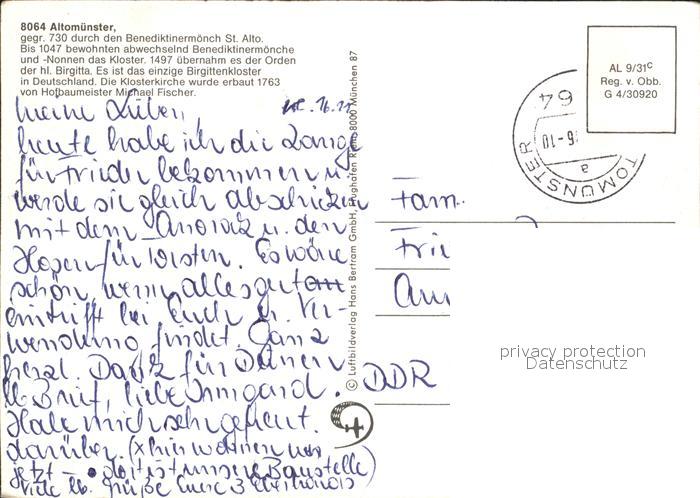 8064 Altomünster,
gegr. 730 durch den Benediktinermönch St. Alto.
Bis 1047 bewohnten abwechselnd Benediktinermönche
und -Nonnen das Kloster. 1497 übernahm es der Orden
der hl. Birgitta. Es ist das einzige Birgittenkloster
in Deutschland. Die Klosterkirche wurde erbaut 1763
von Hofbaumeister Michael Fischer.
Meine Lieben,
heute habe ich die Lange
für Frieder bekommen u.
werde sie gleich abschicken
mit dem Anorak u. den
Hosen für Torsten. Es wäre
schön, wenn alles gut
eintrifft bei Euch u. Ver-
wendung findet. Ganz
herzl. Dank für Deinen
lb. Brief, liebe Irmgard.
Habe mich sehr gefreut
darüber. (x hier wohnen wir
jetzt - dort ist unsere Baustelle)
Viele lb. Grüße Eure 3
© Luftbildverlag Hans Bertram GmbH, Flughafen Riem, 8000 München 87
AL 9/31c
Reg. v. Obb.
G 4/30920
TOMÜNSTER
a
6-10
64
Fam.
Frie
DDR
privacy protection
Datenschutz